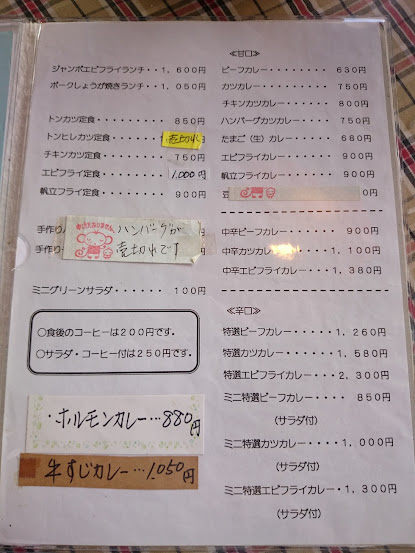 ジャンボエビフライランチ・・１，６００円
ポークしょうが焼きランチ・・１，０５０円
トンカツ定食・・・・・・・・８５０円
トンヒレカツ定食・・・・・売切れ円
チキンカツ定食・・・・・・・７５０円
エビフライ定食・・・・・・1,000円
帆立フライ定食・・・・・・・９００円
手作り
手作り
ハンバーグが
売切れです
円
円
ミニグリーンサラダ・・・・・１００円
○食後のコーヒーは２００円です。
○サラダ・コーヒー付は２５０円です。
・ホルモンカレー…880円
牛すじカレー…1,050円
≪甘口≫
ビーフカレー・・・・・・・・６３０円
カツカレー・・・・・・・・・７５０円
チキンカツカレー・・・・・・８００円
ハンバーグカツカレー・・・・７５０円
たまご（生）カレー・・・・・６８０円
エビフライカレー・・・・・・９００円
帆立フライカレー・・・・・・９００円
０円
中辛ビーフカレー・・・・・・９００円
中辛カツカレー・・・１，１００円
中辛エビフライカレー・・・１，３８０円
≪辛口≫
特選ビーフカレー・・・・・１，２６０円
特選カツカレー・・・・・・１，５８０円
特選エビフライカレー・・・２，３００円
ミニ特選ビーフカレー・・・・８５０円
（サラダ付）
ミニ特選カツカレー・・・１，０００円
（サラダ付）
ミニ特選エビフライカレー・１，３００円
（サラダ付）